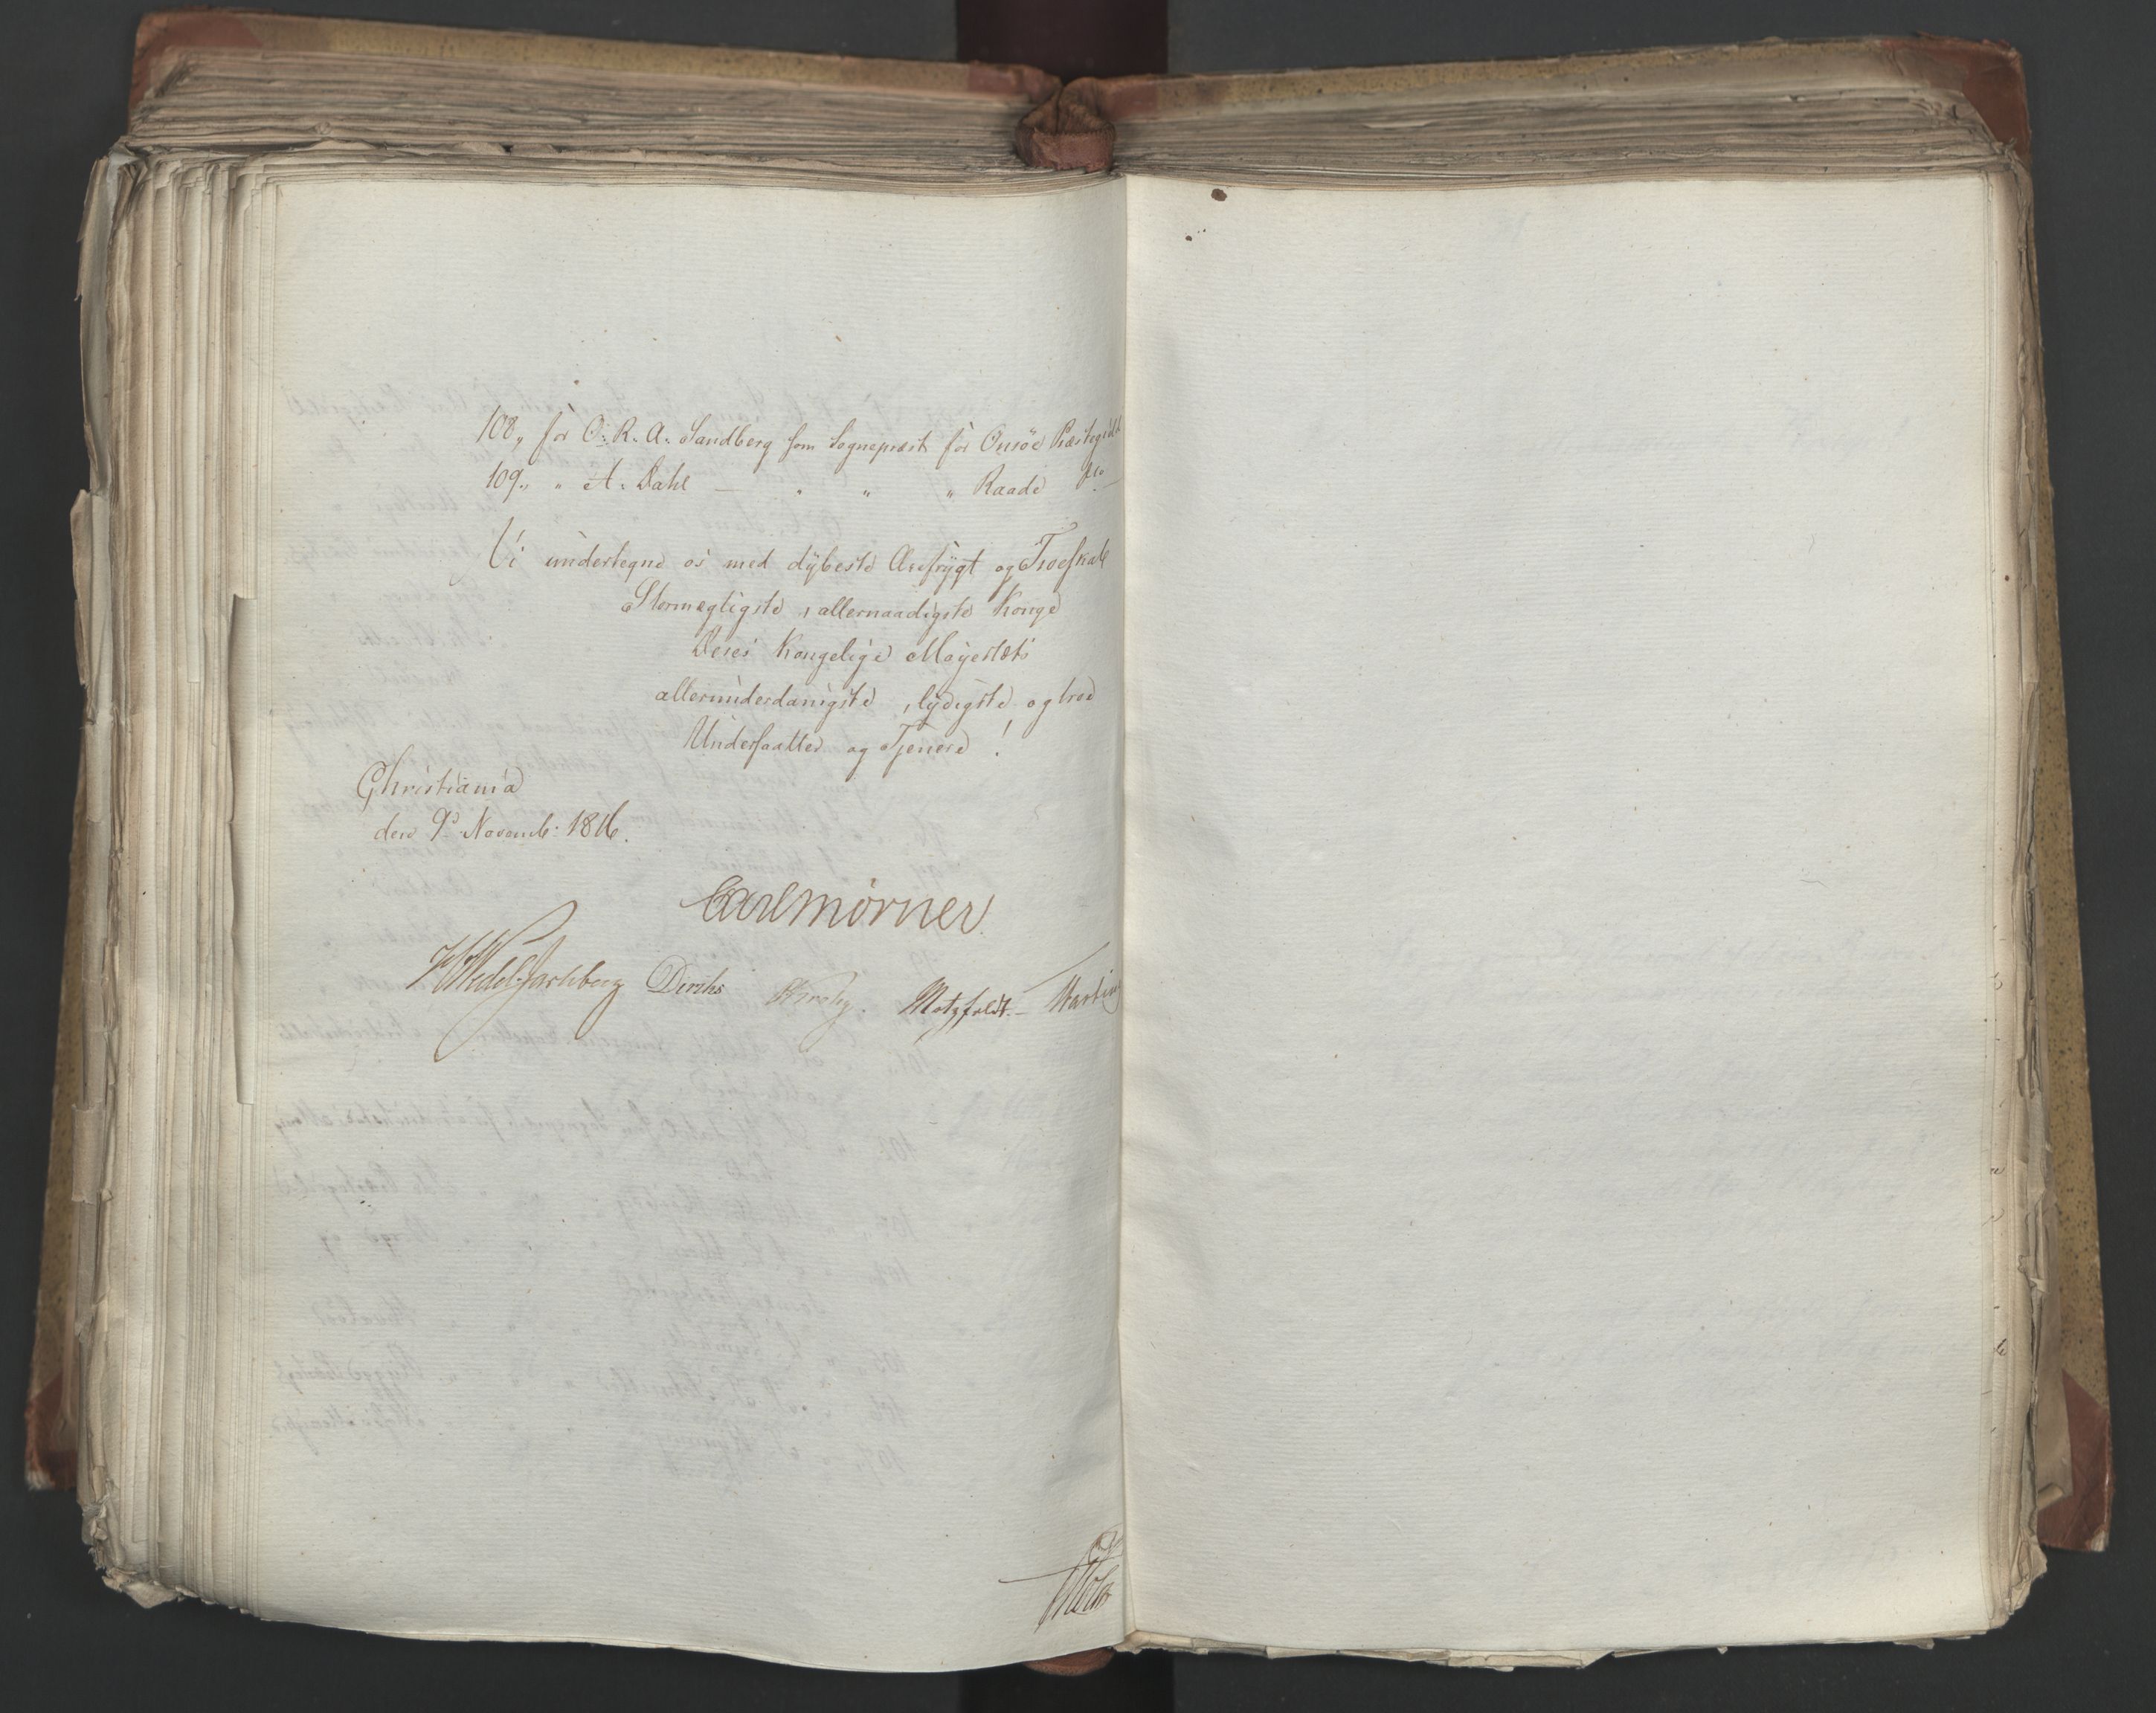 108„ for O: R. A: Sandberg som Sognepræst for Onsöe Præstegield
109„ „ A: Dahl — „ „ „ Raade do
Vi undertegne os med dybeste Ærefrygt og Troeskab
Stormægtigste, allernaadigste Konge
Deres Kongelige Mayestæts
allerunderdanigste, lydigste og troe
Undersaatter og Tjenere!
Christiania
den 9d Novemb: 1816.
Carl Mörner.
HWedel Jarlsberg Diriks Krohg. Motzfeldt.